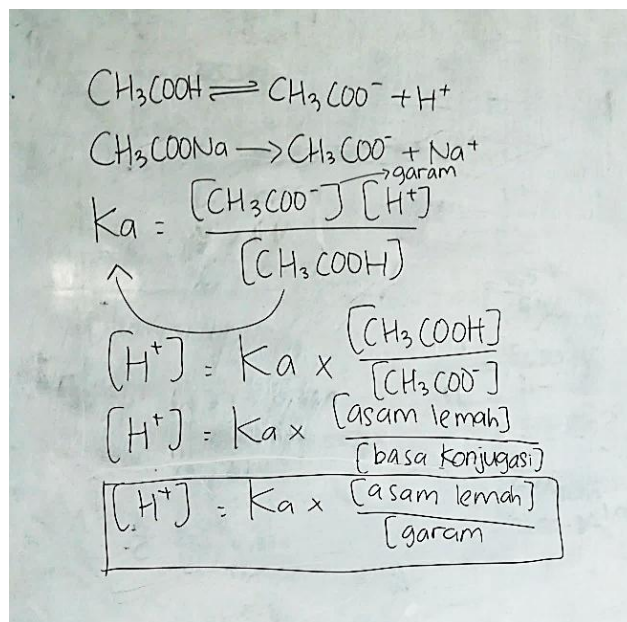 CH₃COOH ⇌ CH₃COO⁻ + H⁺
CH₃COONa → CH₃COO⁻ + Na⁺
→ garam
Ka = [CH₃COO⁻] [H⁺] / [CH₃COOH]
[H⁺] = Ka x [CH₃COOH] / [CH₃COO⁻]
[H⁺] = Ka x [asam lemah] / [basa konjugasi]
[H⁺] = Ka x [asam lemah] / [garam